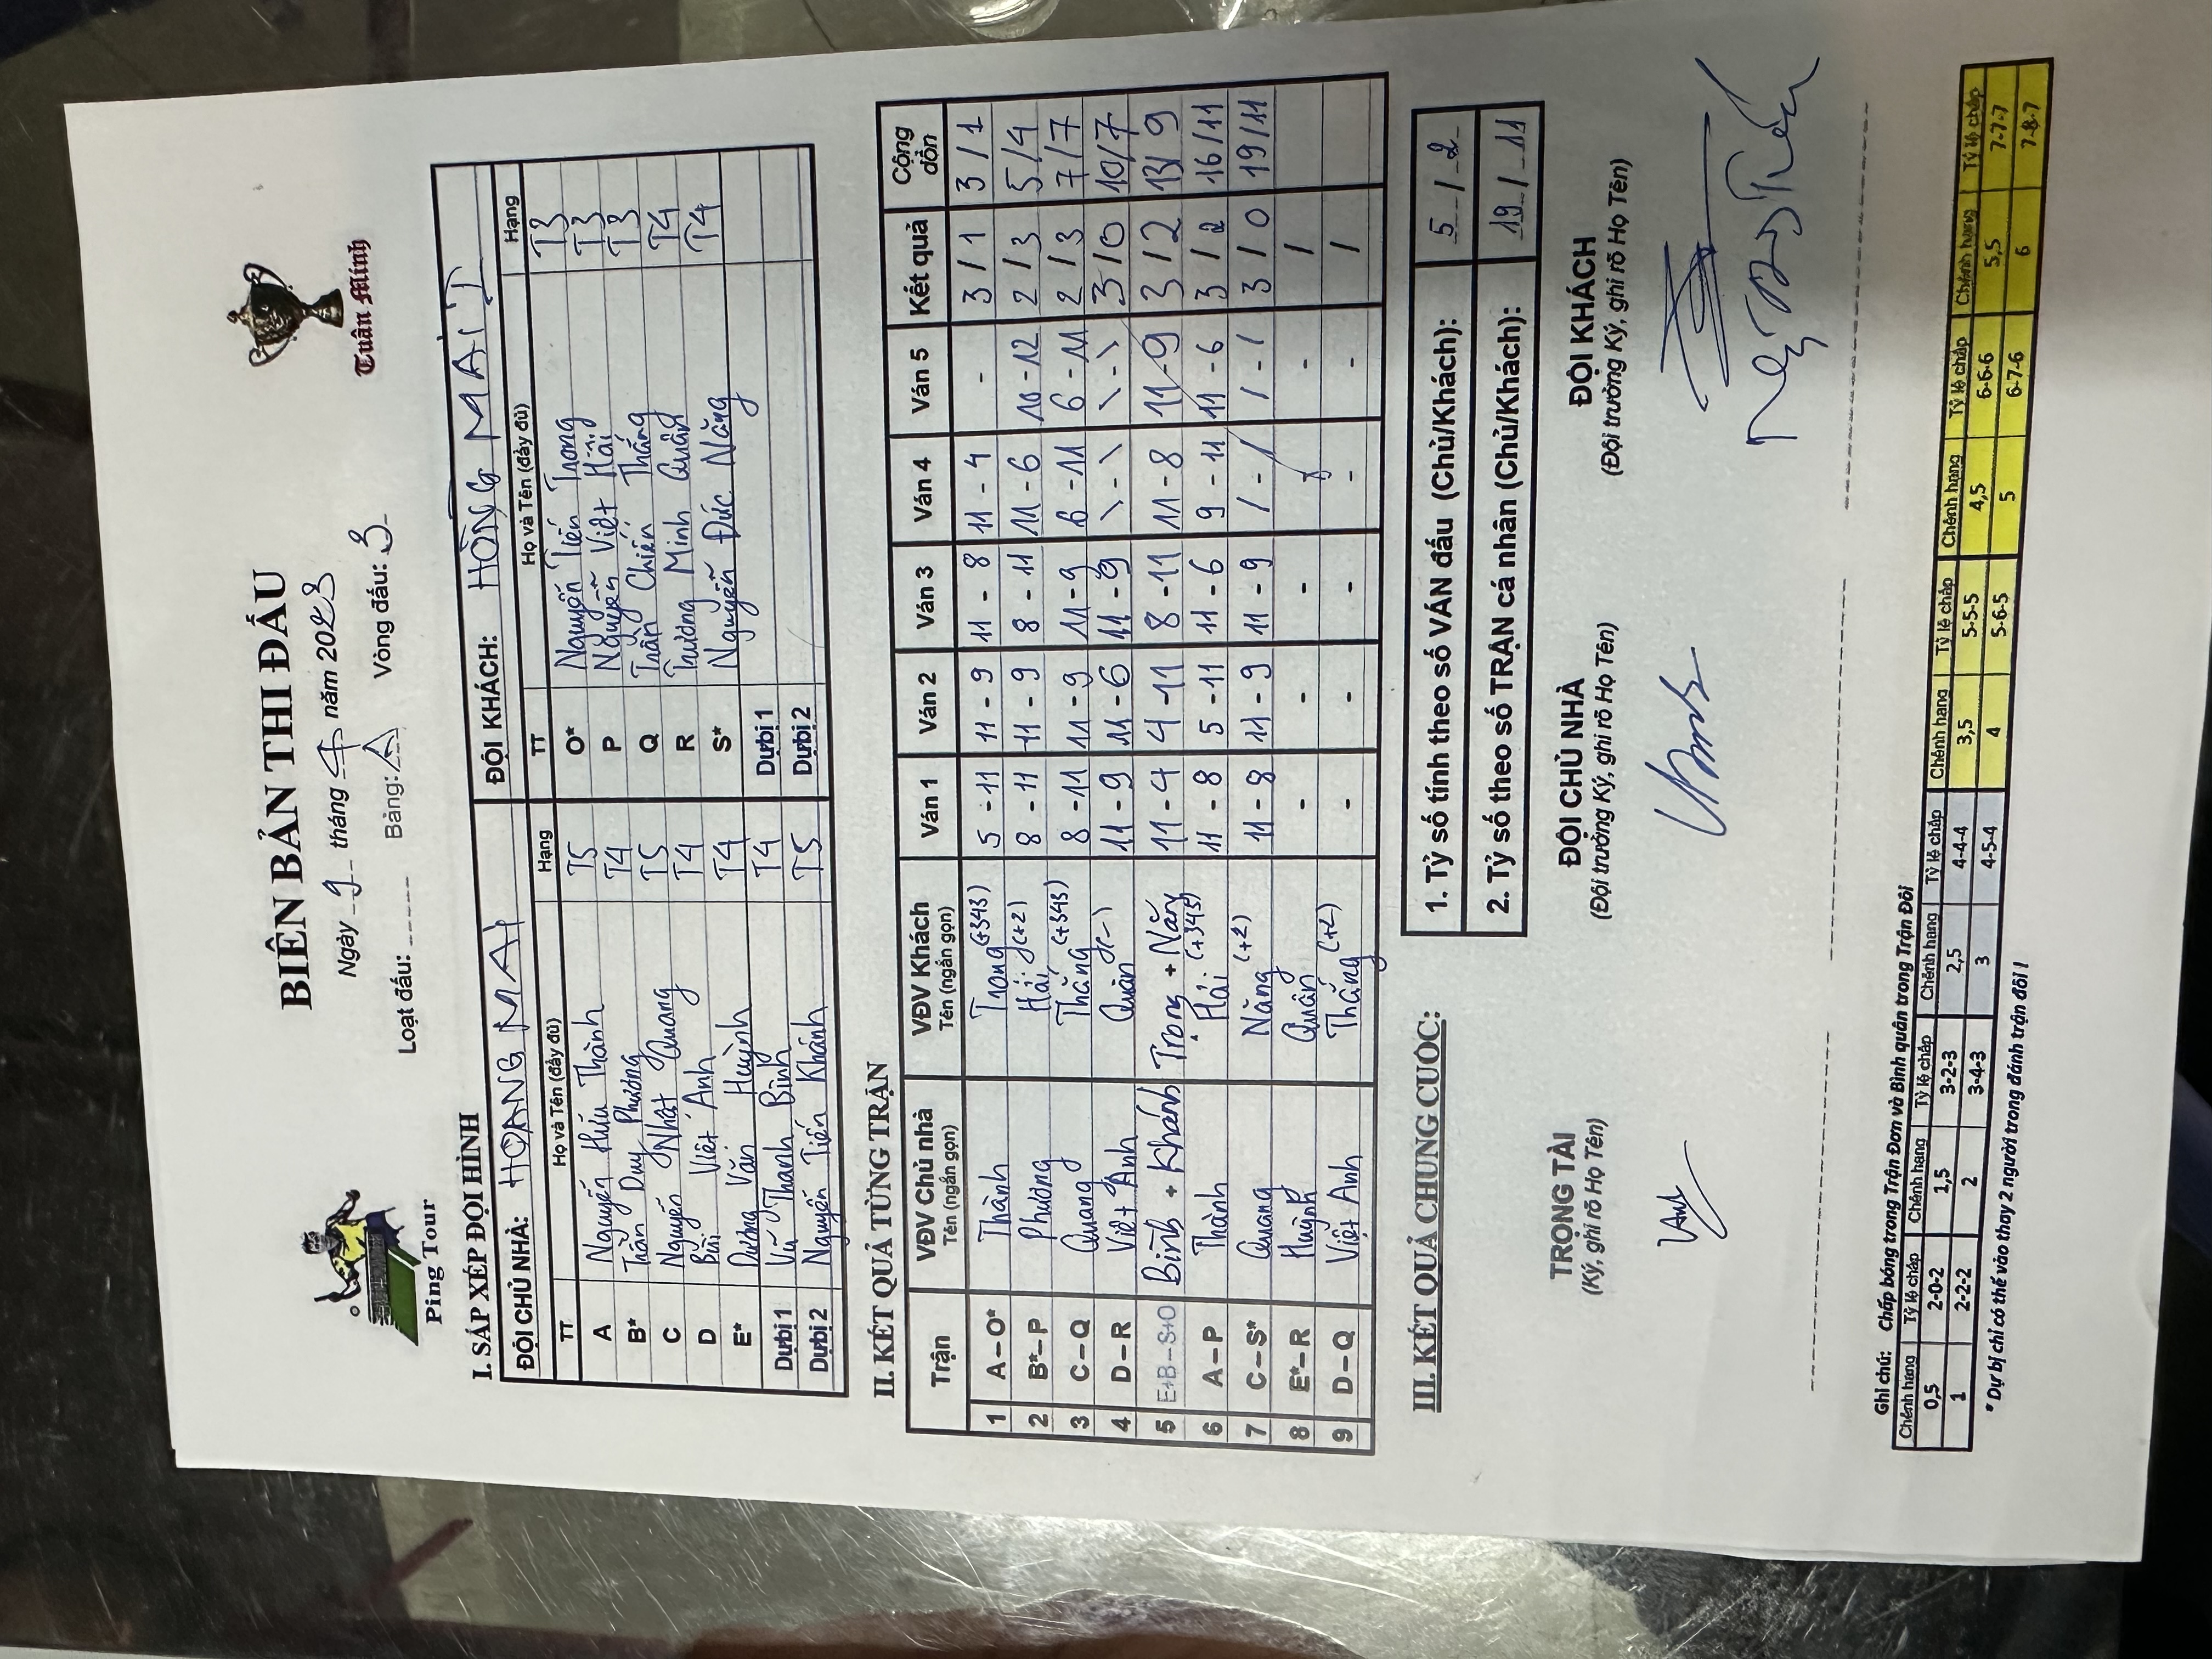 Ping Tour
BIÊN BẢN THI ĐẤU
Tuấn Minh
Ngày 9 tháng 4 năm 2023
Loạt đấu: ---- Bảng: A Vòng đấu: 3
I. SẮP XẾP ĐỘI HÌNH
ĐỘI CHỦ NHÀ: HOANG MAI ĐỘI KHÁCH: HỒNG MAI
TT Họ và Tên (đầy đủ) Hạng TT Họ và Tên (đầy đủ) Hạng
A Nguyễn Hữu Thành T5 O* Nguyễn Tiến Trọng T3
B* Trần Duy Phương T4 P Nguyễn Viết Hải T3
C Nguyễn Nhật Quang T5 Q Trần Chiến Thắng T3
D Bùi Việt Anh T4 R Trương Minh Quân T4
E* Dương Văn Huỳnh T4 S* Nguyễn Đức Năng T4
Dự bị 1 Vũ Thanh Bình T4 Dự bị 1
Dự bị 2 Nguyễn Tiến Khánh T5 Dự bị 2
II. KẾT QUẢ TỪNG TRẬN
Trận VĐV Chủ nhà Tên (ngắn gọn) VĐV Khách Tên (ngắn gọn) Ván 1 Ván 2 Ván 3 Ván 4 Ván 5 Kết quả Cộng dồn
1 A – O* Thành Trọng (+343) 5 - 11 11 - 9 11 - 8 11 - 4 - 3 / 1 3 / 1
2 B* – P Phương Hải (+2) 8 - 11 11 - 9 8 - 11 11 - 6 10 - 12 2 / 3 5 / 4
3 C – Q Quang Thắng (+343) 8 - 11 11 - 9 11 - 9 6 - 11 6 - 11 2 / 3 7 / 7
4 D – R Việt Anh Quân (-) 11 - 9 11 - 6 11 - 9 \ - \ \ - \ 3 / 0 10 / 7
5 E+B – S+O Bình + Khánh Trọng + Năng 11 - 4 4 - 11 8 - 11 11 - 8 11 - 9 3 / 2 13 / 9
6 A – P Thành Hải (+343) 11 - 8 5 - 11 11 - 6 9 - 11 11 - 6 3 / 2 16 / 11
7 C – S* Quang Năng (+2) 11 - 8 11 - 9 11 - 9 / - / / - / 3 / 0 19 / 11
8 E* – R Huỳnh Quân - - - - - /
9 D – Q Việt Anh Thắng (+2) - - - - - /
III. KẾT QUẢ CHUNG CUỘC:
1. Tỷ số tính theo số VÁN đấu (Chủ/Khách): 5 / 2
2. Tỷ số theo số TRẬN cá nhân (Chủ/Khách): 19 / 11
TRỌNG TÀI ĐỘI CHỦ NHÀ ĐỘI KHÁCH
(Ký, ghi rõ Họ Tên) (Đội trưởng Ký, ghi rõ Họ Tên) (Đội trưởng Ký, ghi rõ Họ Tên)
Ghi chú: Chấp bóng trong Trận Đơn và Bình quân trong Trận Đôi
Chênh hạng Tỷ lệ chấp Chênh hạng Tỷ lệ chấp Chênh hạng Tỷ lệ chấp Chênh hạng Tỷ lệ chấp Chênh hạng Tỷ lệ chấp Chênh hạng Tỷ lệ chấp
0,5 2-0-2 1,5 3-2-3 2,5 4-4-4 3,5 5-5-5 4,5 6-6-6 5,5 7-7-7
1 2-2-2 2 3-4-3 3 4-5-4 4 5-6-5 5 6-7-6 6 7-8-7
* Dự bị chỉ có thể vào thay 2 người trong đánh trận đôi !